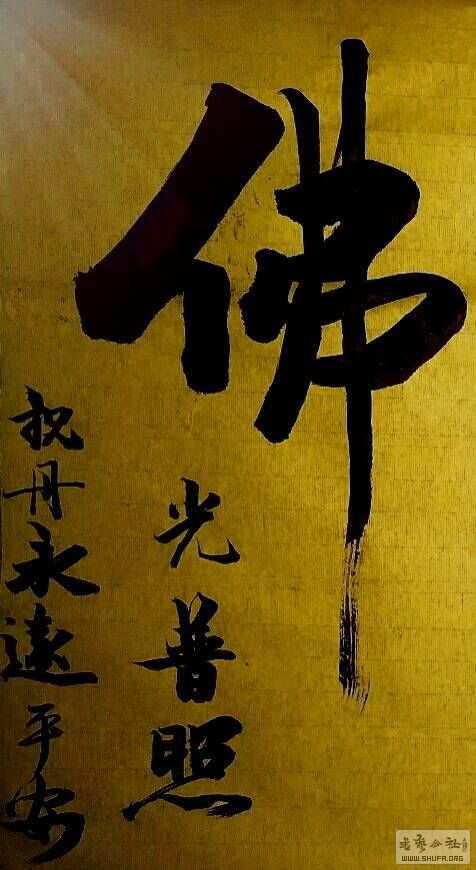 佛
光普照
祝丹永遠平安
書藝公社
WWW.SHUFA.ORG